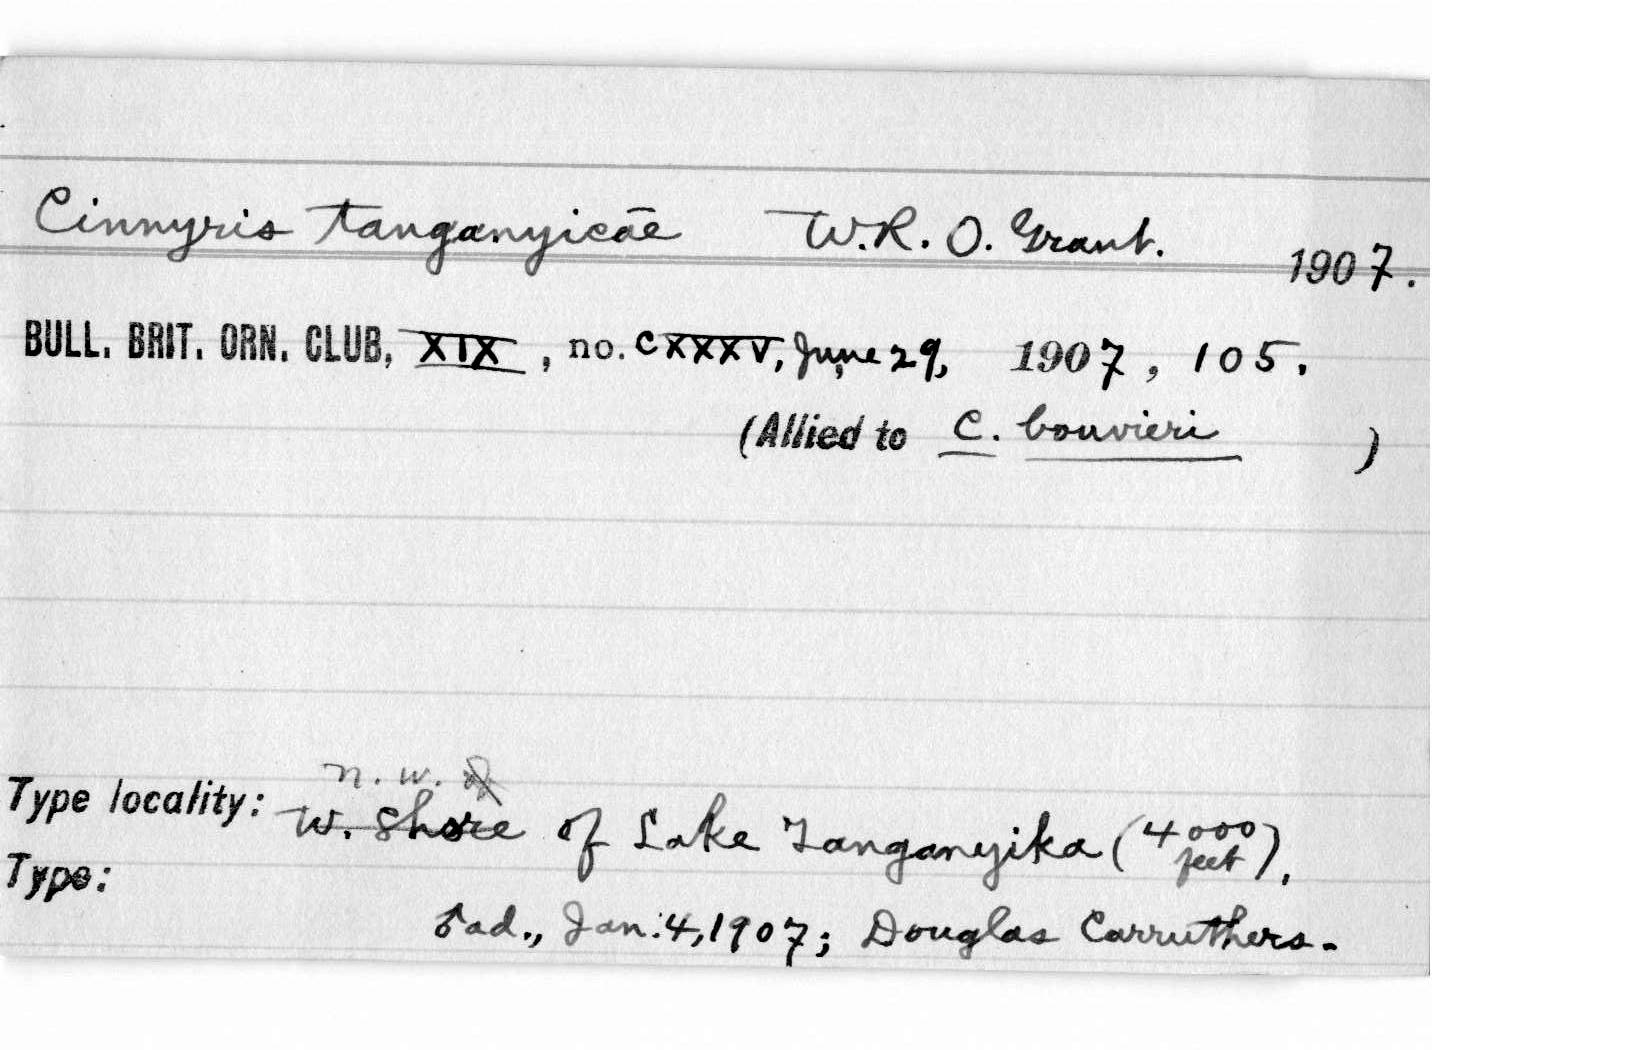 Cinnyris tanganyicæ W.R.O. Grant. 1907.
BULL. BRIT. ORN. CLUB, XIX, no. CXXXV, June 29, 1907, 105.
(Allied to C. bouvieri )
n. w. of
Type locality: W. shore of Lake Tanganyika (4000 feet).
Type:
♂ ad., Jan. 4, 1907; Douglas Carruthers.